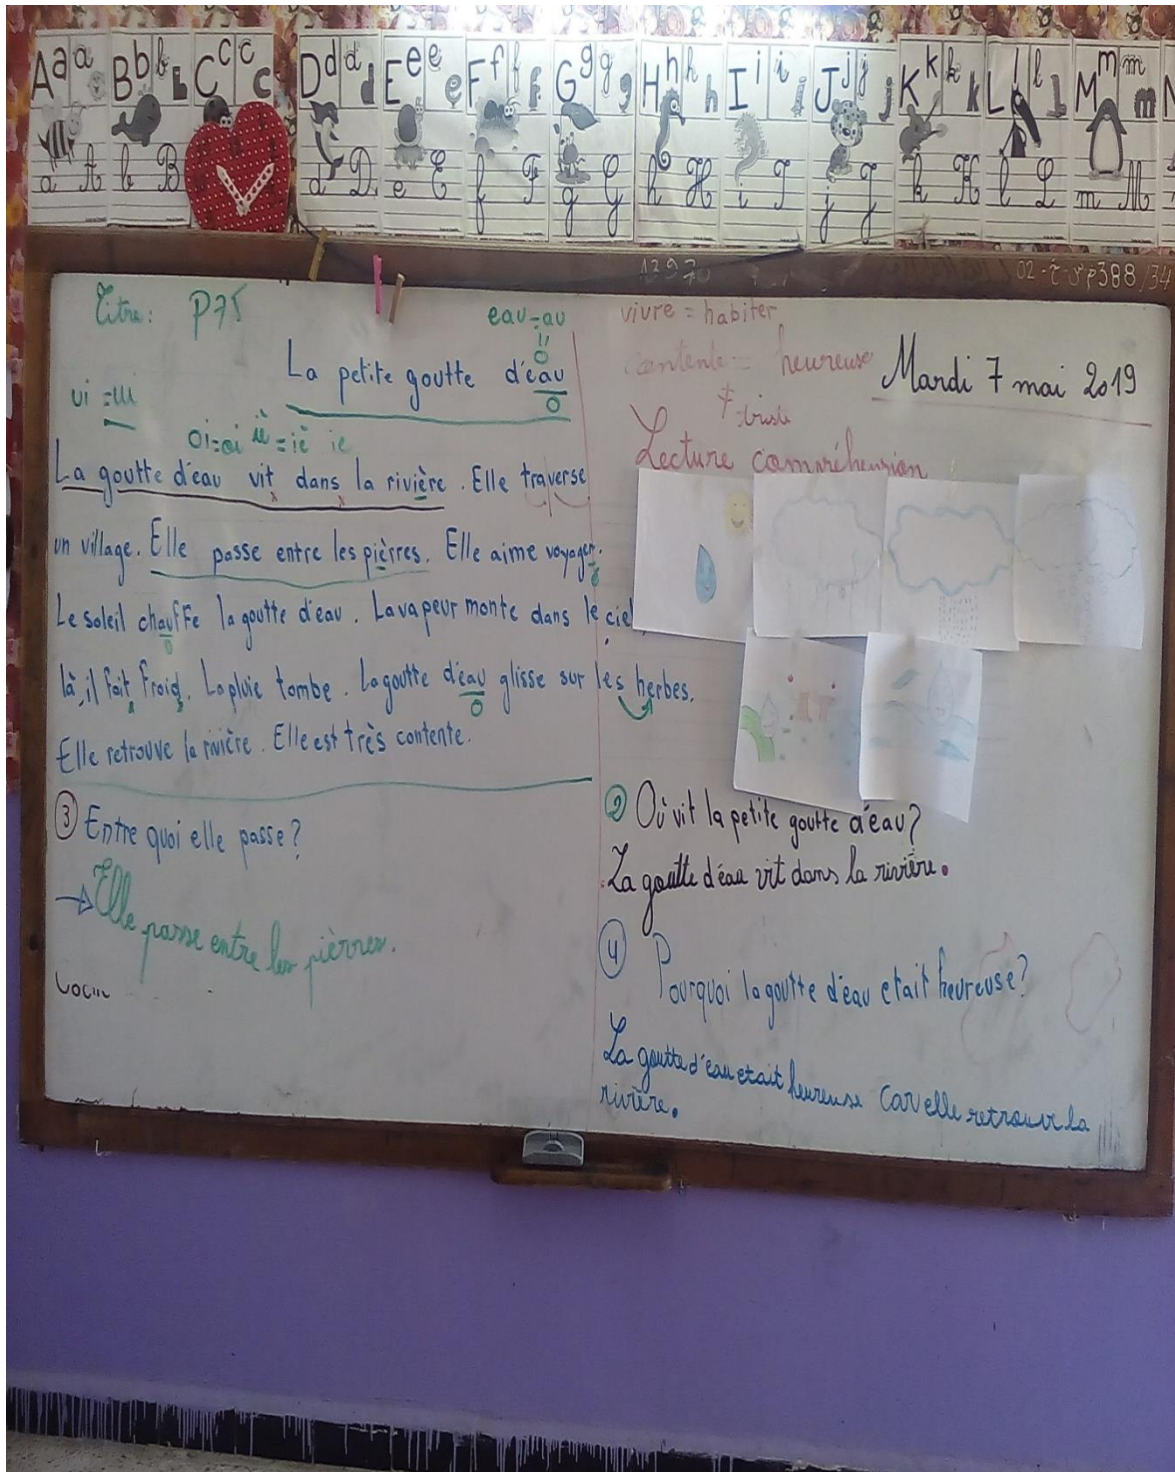 A a a
B b b b
C c c c
D d d d
E e e e
F f f f
G g g g
H h h h
I i i i
J j j j
K k k k
L l l l
M m m m
a A
b B
d D
e E
f F
g G
h H
i I
j J
k K
l L
m M
1297
02
p388/34
Titre: P75
eau=au
o
La petite goutte d'eau
o
ui = ui
oi=oi iè = iè ie
La goutte d'eau vit dans la rivière. Elle traverse
un village. Elle passe entre les pièrres. Elle aime voyager.
Le soleil chauffe la goutte d'eau. La vapeur monte dans le ciel,
là, il fait froid. La pluie tombe. La goutte d'eau glisse sur les herbes.
Elle retrouve la rivière. Elle est très contente.
③ Entre quoi elle passe?
→ Elle passe entre les pièrres.
vivre = habiter
contente = heureuse
≠ triste
Mardi 7 mai 2019
Lecture compréhension
② Où vit la petite goutte d'eau?
La goutte d'eau vit dans la rivière.
④ Pourquoi la goutte d'eau etait heureuse?
La goutte d'eau etait heureuse car elle retrouve la
rivière.